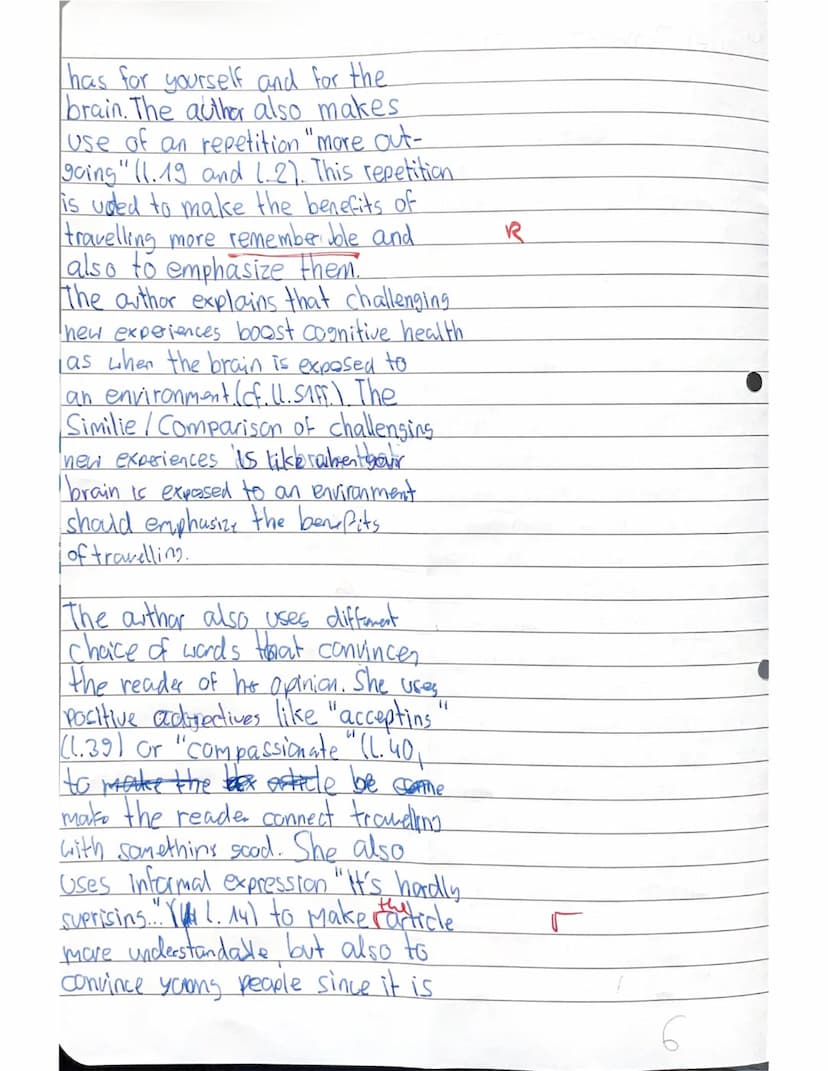 has for yourself and for the
brain. The author also makes
use of an repetition "more out-
going" (l.19 and l.2). This repetition
is used to make the benefits of
travelling more rememberible and R
also to emphasize them.
The author explains that challenging
new experiences boost cognitive health
as when the brain is exposed to
an environment (cf. ll.51ff.). The
Similie / Comparison of challenging
new experiences is like when your
brain is exposed to an environment
should emphasize the benefits
of travelling.
The author also uses different
choice of words that convinces
the reader of her opinion. She uses
positive adjectives like "accepting"
(l.39) or "compassionate" (l.40)
to make the article be come
make the reader connect travelling
with something good. She also
uses informal expression "It's hardly
suprising..." (l. 14) to make the article Γ
more understandable, but also to
convince young people since it is
6